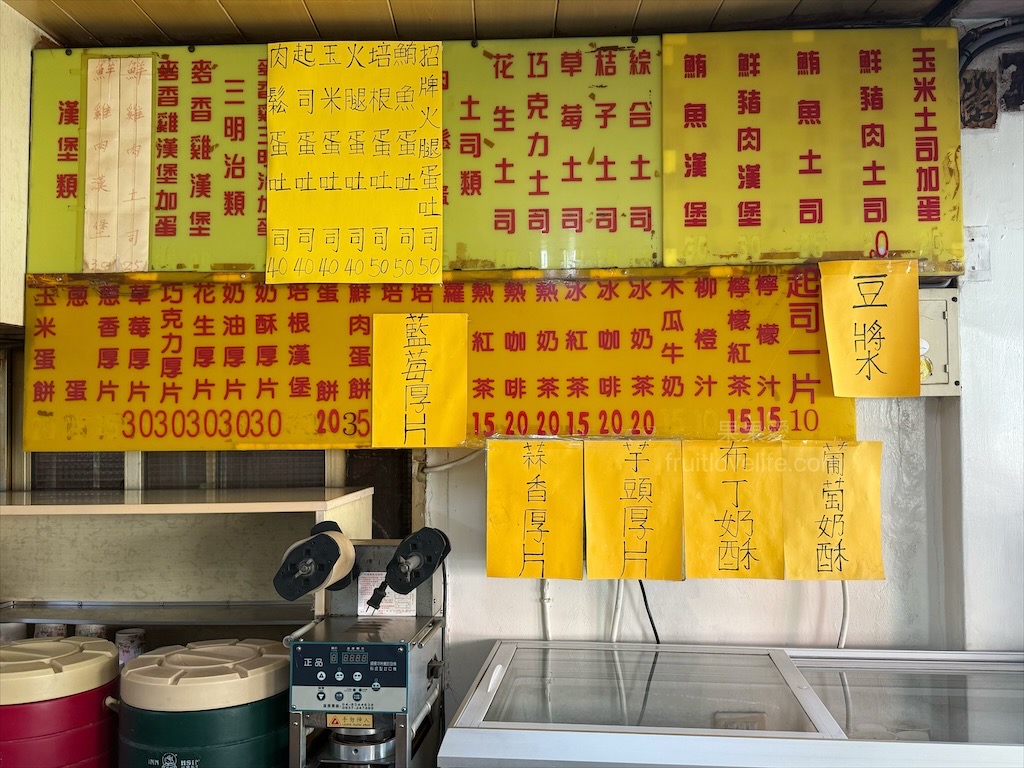 玉米土司加蛋
鮮豬肉土司
鮪魚土司
鮮豬肉漢堡
鮪魚漢堡
綜合土司
桔子土司
草莓土司
巧克力土司
花生土司
土司類
招牌火腿蛋吐司50
鮪魚蛋吐司50
培根蛋吐司50
火腿蛋吐司40
玉米蛋吐司40
起司蛋吐司40
肉鬆蛋吐司40
三明治類
麥香雞漢堡
麥香雞漢堡加蛋
鮮雞肉土司
鮮雞肉漢堡
漢堡類
豆漿
起司一片10
檸檬汁15
檸檬紅茶15
柳橙汁
木瓜牛奶
冰奶茶20
冰咖啡20
冰紅茶15
熱奶茶20
熱咖啡20
熱紅茶15
蘿
培
培
藍莓厚片
鮮肉蛋餅35
蛋餅20
培根漢堡
奶酥厚片30
奶油厚片30
花生厚片30
巧克力厚片30
草莓厚片30
蔥香厚片
蔥蛋
玉米蛋餅
葡萄奶酥
布丁奶酥
芋頭厚片
蒜香厚片
fruitlovelife.com
正品